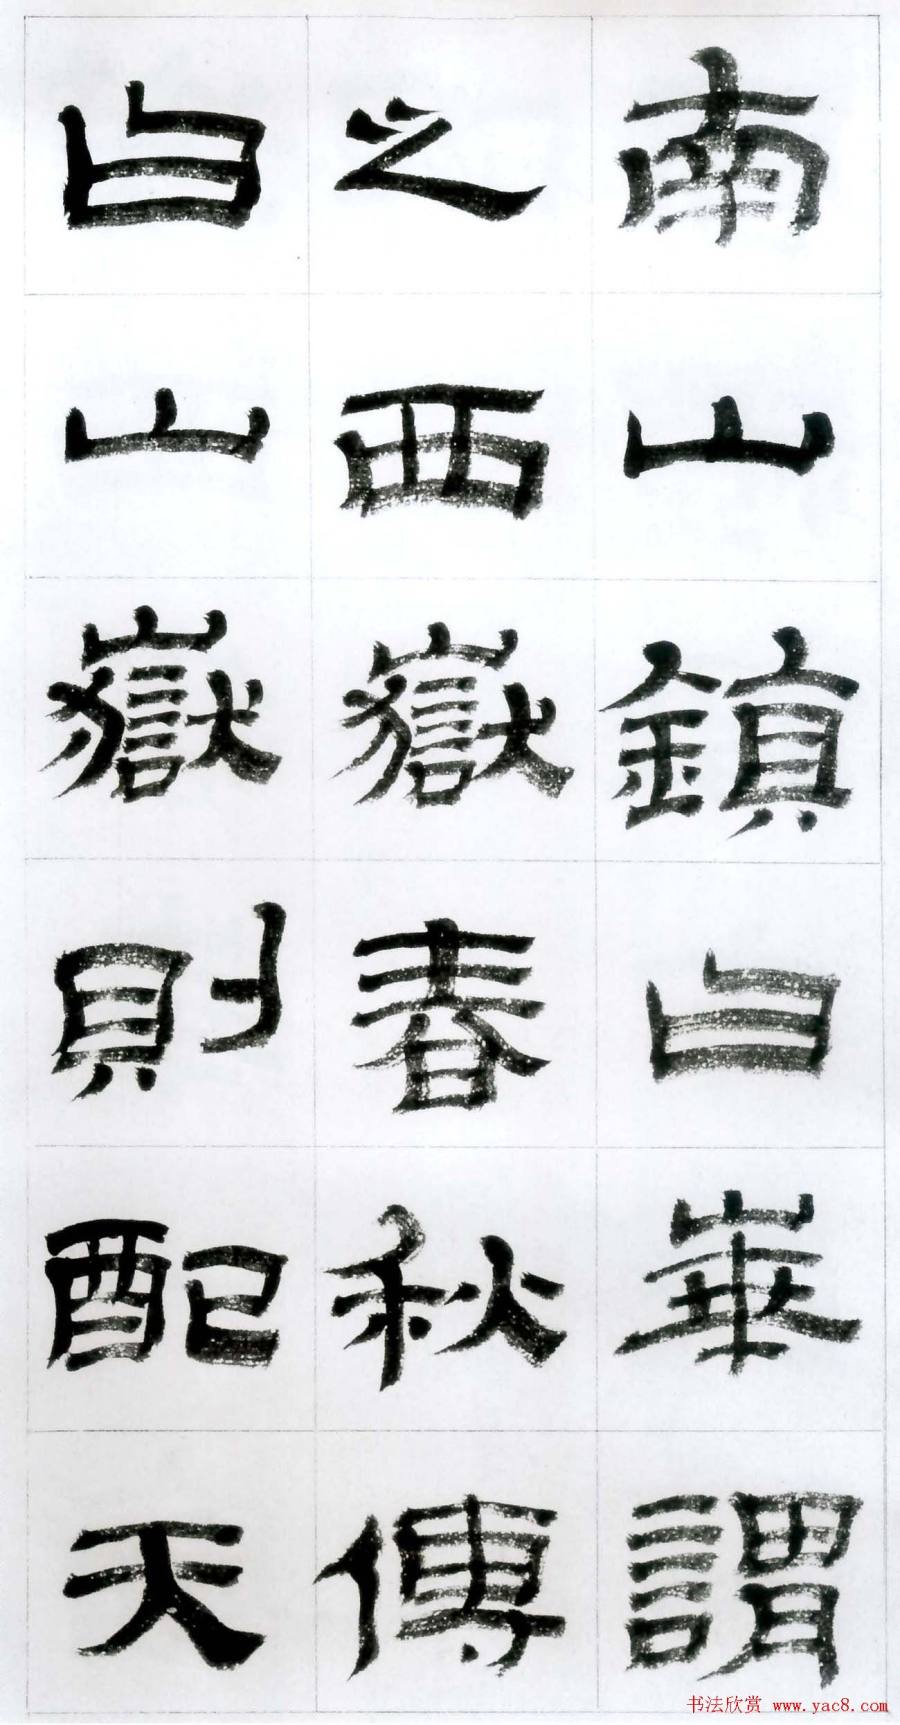 南山鎮曰華謂
之西嶽春秋傳
曰山嶽則配天
书法欣赏 www.yac8.com